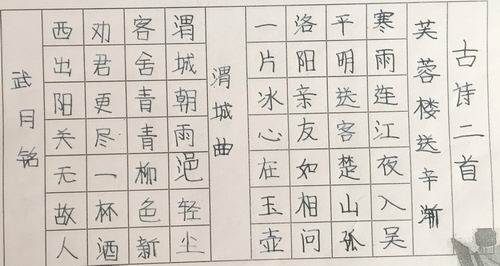 古诗二首
芙蓉楼送辛渐
寒雨连江夜入吴
平明送客楚山孤
洛阳亲友如相问
一片冰心在玉壶
渭城曲
渭城朝雨浥轻尘
客舍青青柳色新
劝君更尽一杯酒
西出阳关无故人
武月铭